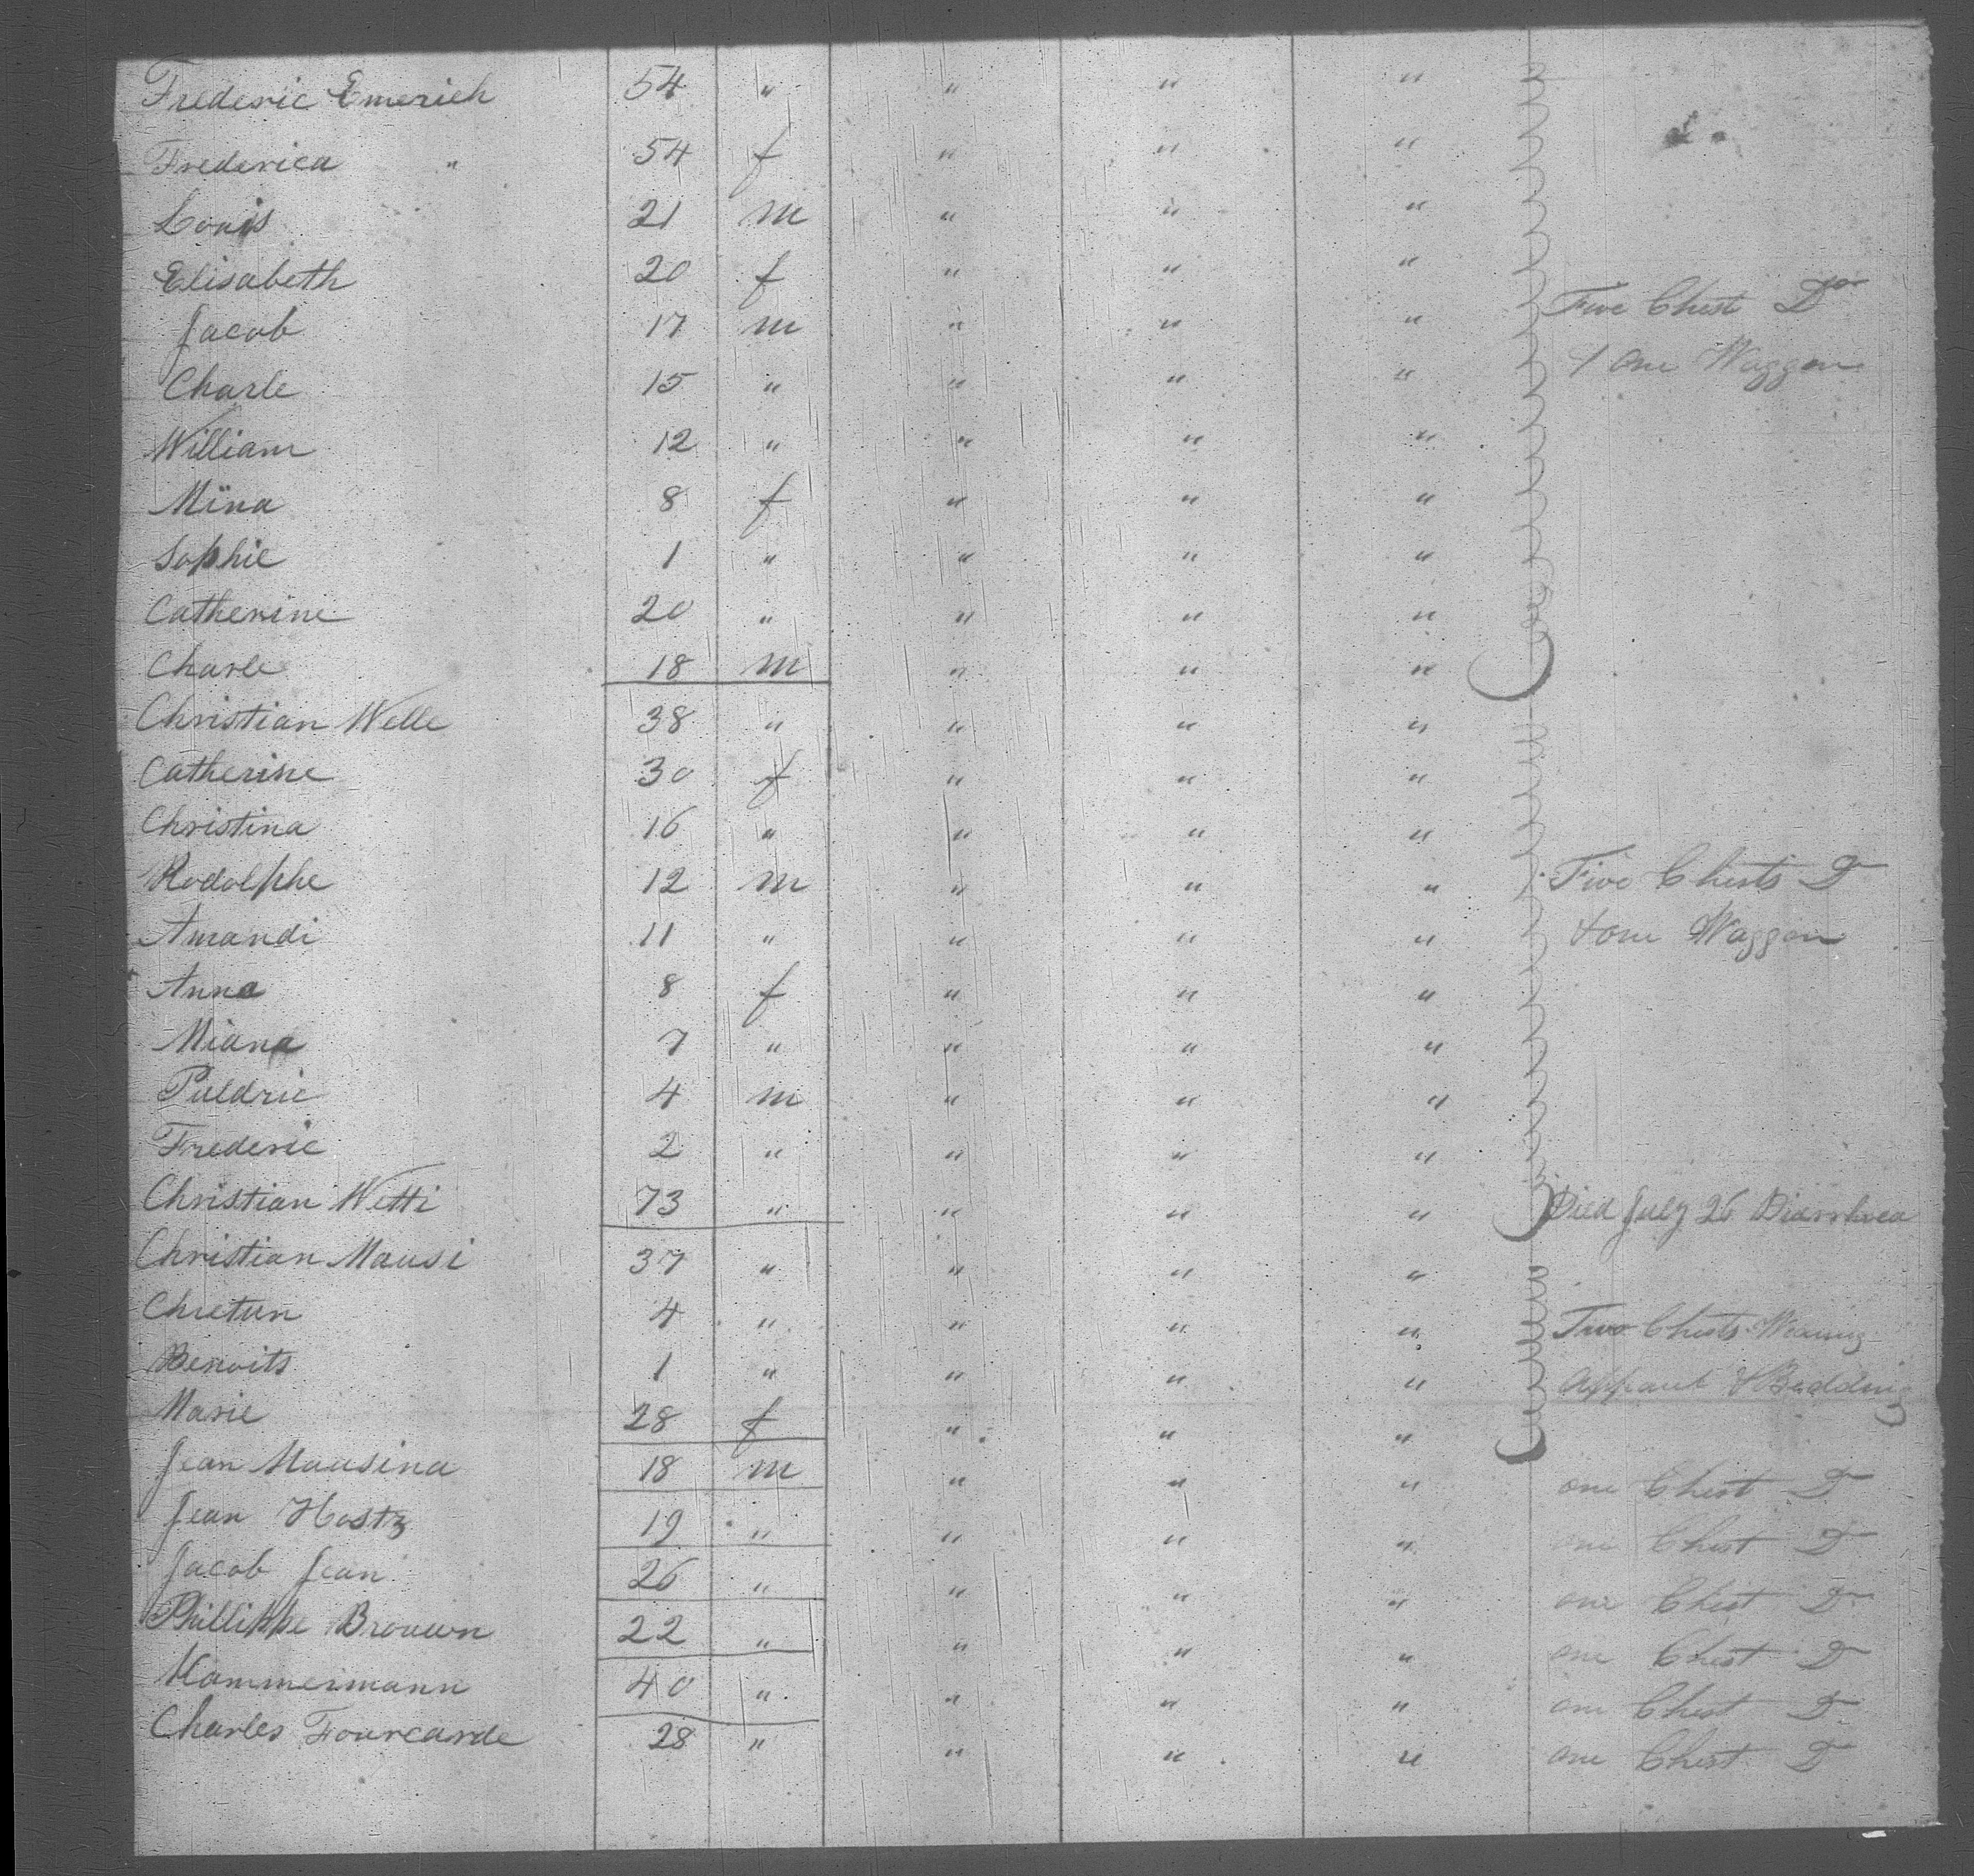 Frederic Emerich 54 " " " "
Frederica " 54 f " " "
Louis 21 m " " "
Elisabeth 20 f " " "
Five Chest Do
Jacob 17 m " " "
& one Waggon
Charle 15 " " " "
William 12 " " " "
Mina 8 f " " "
Sophie 1 " " " "
Catherine 20 " " " "
Charle 18 m " " "
Christian Welle 38 " " " "
Catherine 30 f " " "
Christina 16 " " " "
Rodolphe 12 m " " " Five Chests Do
Amandi 11 " " " " & one Waggon
Anna 8 f " " "
Miana 7 " " " "
4 m " " "
Frederic 2 " " " "
Christian Wetti 73 " " " " Died July 26 Diarrhea
Christian Mausi 37 " " " "
Chretien 4 " " " " Two Chests Wearing
Benoits 1 " " " " Apparel & Bedding
Marie 28 f " " "
Jean Mausina 18 m " " " one Chest Do
Jean Hostz 19 " " " " one Chest Do
Jacob Jean 26 " " " " one Chest Do
Phillippe Brouwn 22 " " " " one Chest Do
Hammermann 40 " " " " one Chest Do
Charles Fourcarde 28 " " " " one Chest Do